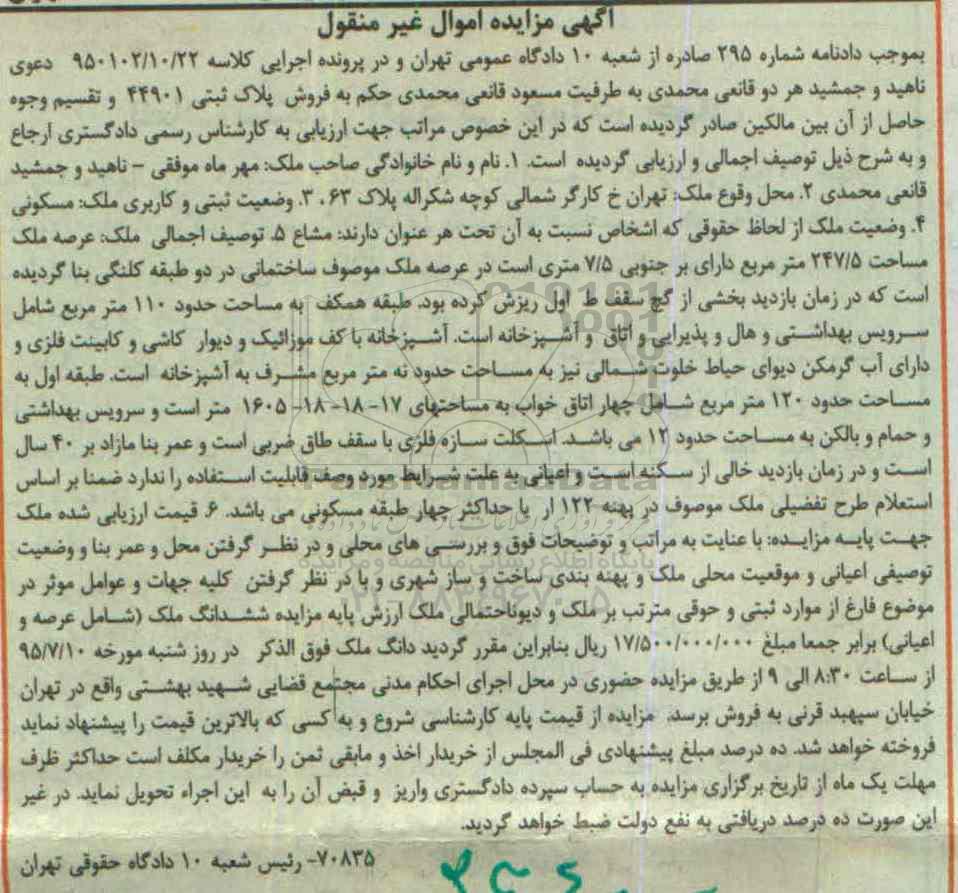 آگهی مزایده اموال غیر منقول
بموجب دادنامه شماره ۲۹۵ صادره از شعبه ۱۰ دادگاه عمومی تهران و در پرونده اجرایی کلاسه ۹۵۰۱۰۲/۱۰/۲۲ دعوی
ناهید و جمشید هر دو قانعی محمدی به طرفیت مسعود قانعی محمدی حکم به فروش پلاک ثبتی ۴۴۹۰۱ و تقسیم وجوه
حاصل از آن بین مالکین صادر گردیده است که در این خصوص مراتب جهت ارزیابی به کارشناس رسمی دادگستری ارجاع
و به شرح ذیل توصیف اجمالی و ارزیابی گردیده است. ۱. نام و نام خانوادگی صاحب ملک: مهر ماه موفقی – ناهید و جمشید
قانعی محمدی ۲. محل وقوع ملک: تهران خ کارگر شمالی کوچه شکراله پلاک ۶۳ . ۳. وضعیت ثبتی و کاربری ملک: مسکونی
۴. وضعیت ملک از لحاظ حقوقی که اشخاص نسبت به آن تحت هر عنوان دارند: مشاع ۵. توصیف اجمالی ملک: عرصه ملک
مساحت ۲۴۷/۵ متر مربع دارای بر جنوبی ۷/۵ متری است در عرصه ملک موصوف ساختمانی در دو طبقه کلنگی بنا گردیده
است که در زمان بازدید بخشی از گچ سقف ط اول ریزش کرده بود. طبقه همکف به مساحت حدود ۱۱۰ متر مربع شامل
سرویس بهداشتی و هال و پذیرایی و اتاق و آشپزخانه است. آشپزخانه با کف موزائیک و دیوار کاشی و کابینت فلزی و
دارای آب گرمکن دیوای حیاط خلوت شمالی نیز به مساحت حدود نه متر مربع مشرف به آشپزخانه است. طبقه اول به
مساحت حدود ۱۲۰ متر مربع شامل چهار اتاق خواب به مساحتهای ۱۷- ۱۸- ۱۸- ۱۶۰۵ متر است و سرویس بهداشتی
و حمام و بالکن به مساحت حدود ۱۲ می باشد. اسکلت سازه فلزی با سقف طاق ضربی است و عمر بنا مازاد بر ۴۰ سال
است و در زمان بازدید خالی از سکنه است و اعیانی به علت شرایط مورد وصف قابلیت استفاده را ندارد ضمنا بر اساس
استعلام طرح تفضیلی ملک موصوف در پهنه ۱۲۲ ار با حداکثر چهار طبقه مسکونی می باشد. ۶. قیمت ارزیابی شده ملک
جهت پایه مزایده: با عنایت به مراتب و توضیحات فوق و بررسی های محلی و در نظر گرفتن محل و عمر بنا و وضعیت
توصیفی اعیانی و موقعیت محلی ملک و پهنه بندی ساخت و ساز شهری و با در نظر گرفتن کلیه جهات و عوامل موثر در
موضوع فارغ از موارد ثبتی و حوقی مترتب بر ملک و دیوناحتمالی ملک ارزش پایه مزایده ششدانگ ملک (شامل عرصه و
اعیانی) برابر جمعا مبلغ ۱۷/۵۰۰/۰۰۰/۰۰۰ ریال بنابراین مقرر گردید دانگ ملک فوق الذکر در روز شنبه مورخه ۹۵/۷/۱۰
از ساعت ۸:۳۰ الی ۹ از طریق مزایده حضوری در محل اجرای احکام مدنی مجتمع قضایی شهید بهشتی واقع در تهران
خیابان سپهبد قرنی به فروش برسد. مزایده از قیمت پایه کارشناسی شروع و به کسی که بالاترین قیمت را پیشنهاد نماید
فروخته خواهد شد. ده درصد مبلغ پیشنهادی فی المجلس از خریدار اخذ و مابقی ثمن را خریدار مکلف است حداکثر ظرف
مهلت یک ماه از تاریخ برگزاری مزایده به حساب سپرده دادگستری واریز و قبض آن را به این اجراء تحویل نماید. در غیر
این صورت ده درصد دریافتی به نفع دولت ضبط خواهد گردید.
۷۰۸۳۵- رئیس شعبه ۱۰ دادگاه حقوقی تهران